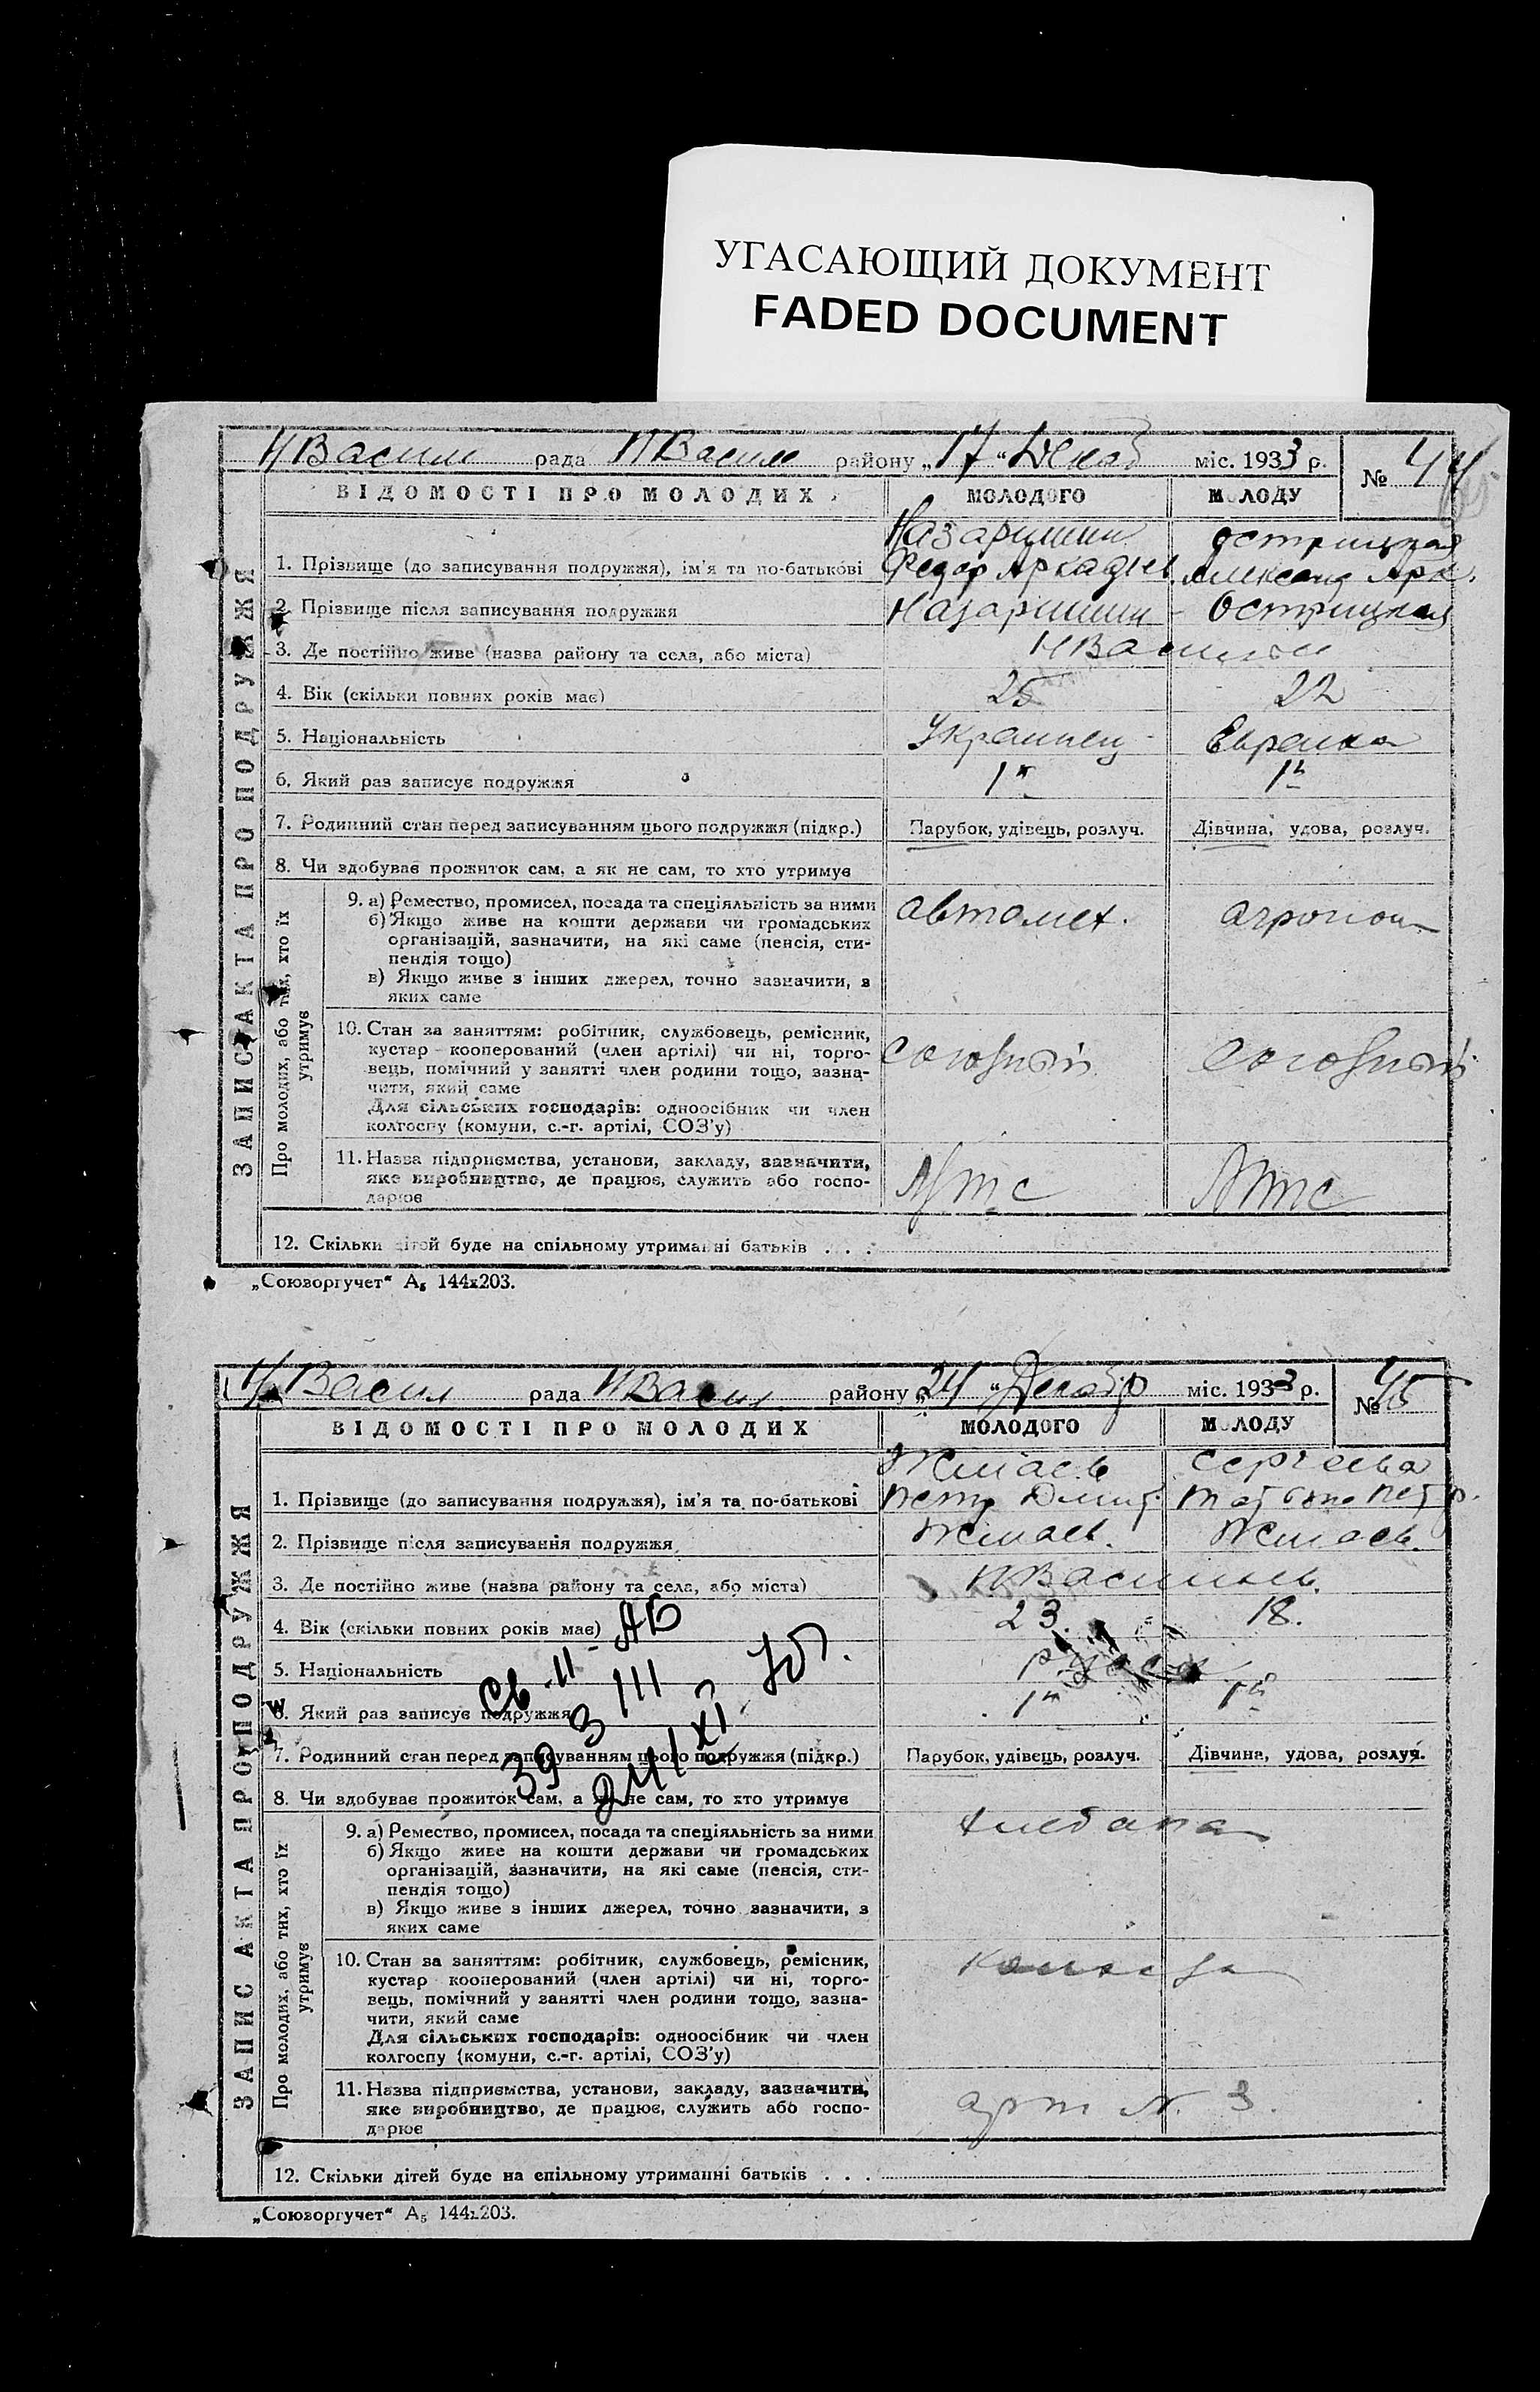 УГАСАЮЩИЙ ДОКУМЕНТ
FADED DOCUMENT
НВасил рада НВасил району „17“ Декаб міс. 1933 р. № 44
ВІДОМОСТІ ПРО МОЛОДИХ МОЛОДОГО МОЛОДУ
Острицкая
1. Прізвище (до записування подружжя), ім'я та по-батькові Федор Аркадьев Александ Арк.
2. Прізвище після записування подружжя Острицкая
3. Де постійно живе (назва району та села, або міста)
4. Вік (скільки повних років має) 25 22
5. Національність Украинец Еврейка
6. Який раз записує подружжя 1й 1й
7. Родинний стан перед записуванням цього подружжя (підкр.) Парубок, удівець, розлуч. Дівчина, удова, розлуч.
8. Чи здобуває прожиток сам, а як не сам, то хто утримує
9. а) Ремество, промисел, посада та спеціяльність за ними автомех. агроном
б) Якщо живе на кошти держави чи громадських
організацій, зазначити, на які саме (пенсія, сти-
пендія тощо)
в) Якщо живе з інших джерел, точно зазначити, з
яких саме
10. Стан за заняттям: робітник, службовець, ремісник,
кустар кооперований (член артілі) чи ні, торго- союзный союзный
вець, помічний у занятті член родини тощо, зазна-
чити, який саме
Для сільських господарів: одноосібник чи член
колгоспу (комуни, с.-г. артілі, СОЗ'у)
11. Назва підприємства, установи, закладу, зазначити,
яке виробництво, де працює, служить або госпо- Мтс Мтс
дарює
12. Скільки дітей буде на спільному утриманні батьків . . .
Про молодих, або тих, хто їх утримує
ЗАПИС АКТА ПРО ПОДРУЖЖЯ
„Союзоргучет“ А₅ 144х203.
НВасил рада НВасил району „24“ Декабр міс. 1933 р. № 45
ВІДОМОСТІ ПРО МОЛОДИХ МОЛОДОГО МОЛОДУ
Сергеева
1. Прізвище (до записування подружжя), ім'я та по-батькові Петр Дмит. Татьяна Петр.
2. Прізвище після записування подружжя
3. Де постійно живе (назва району та села, або міста)
4. Вік (скільки повних років має) 23. 18.
5. Національність
6. Який раз записує подружжя 1й 1й
7. Родинний стан перед записуванням цього подружжя (підкр.) Парубок, удівець, розлуч. Дівчина, удова, розлуч.
8. Чи здобуває прожиток сам, а як не сам, то хто утримує
9. а) Ремество, промисел, посада та спеціяльність за ними
б) Якщо живе на кошти держави чи громадських
організацій, зазначити, на які саме (пенсія, сти-
пендія тощо)
в) Якщо живе з інших джерел, точно зазначити, з
яких саме
10. Стан за заняттям: робітник, службовець, ремісник,
кустар кооперований (член артілі) чи ні, торго-
вець, помічний у занятті член родини тощо, зазна-
чити, який саме
Для сільських господарів: одноосібник чи член
колгоспу (комуни, с.-г. артілі, СОЗ'у)
11. Назва підприємства, установи, закладу, зазначити,
яке виробництво, де працює, служить або госпо- арт N. 3.
дарює
12. Скільки дітей буде на спільному утриманні батьків . . .
Про молодих, або тих, хто їх утримує
ЗАПИС АКТА ПРО ПОДРУЖЖЯ
Св. II-АБ
„Союзоргучет“ А₅ 144х203.